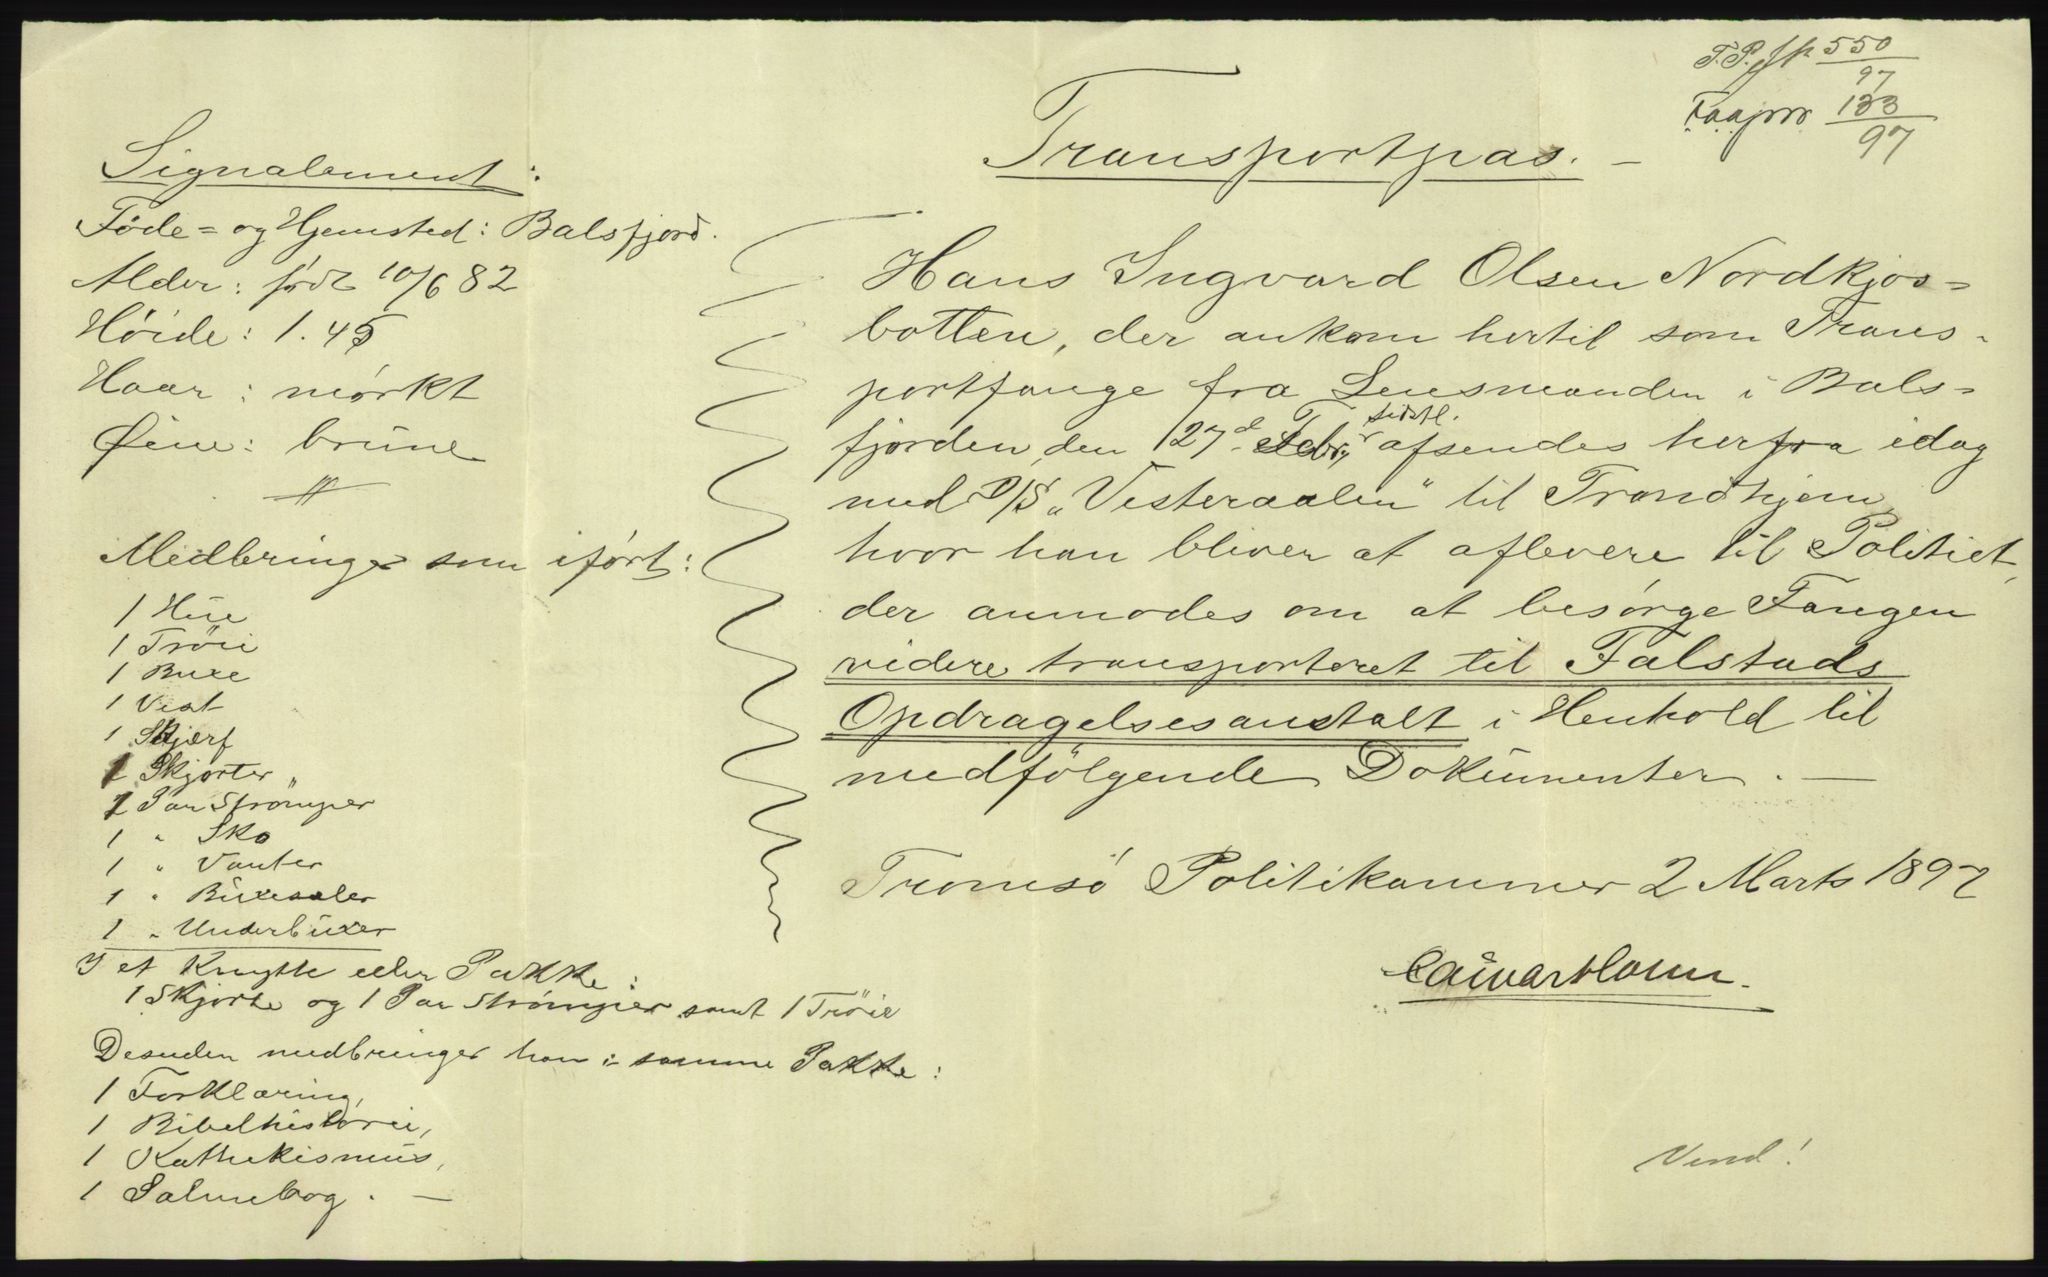 Signalement:
Føde- og Hjemsted: Balsfjord.
Alder: født 10/6 82
Høide: 1.45
Haar: mørkt
Øine: brune
Medbringer som iført:
1 Hue
1 Trøie
1 Buxe
1 Vest
1 Skjerf
1 Skjorter "
1 Par Strømper
1 " Sko
1 " Vanter
1 " Buxeseler
1 " Underbuxer
I et Knytte eller Pakke:
1 Skjorte og 1 Par Strømper samt 1 Trøie
Desuden medbringer han i samme Pakke:
1 Forklaring,
1 Bibelhistorie,
1 Kathekismus,
1 Salmebog. —
550
97
133
97
Transportpas. —
Hans Ingvard Olsen Nordkjos-
botten, der ankom hertil som Trans-
portfange fra Lensmanden i Bals-
fjorden den 27d Febr. sidstl. afsendes herfra idag
med D/S „Vesteraalen" til Trondhjem,
hvor han bliver at aflevere til Politiet,
der anmodes om at besørge Fangen
videre transporteret til Falstads
Opdragelsesanstalt i Henhold til
medfølgende Dokumenter. —
Tromsø Politikammer 2 Marts 1897
Vend!